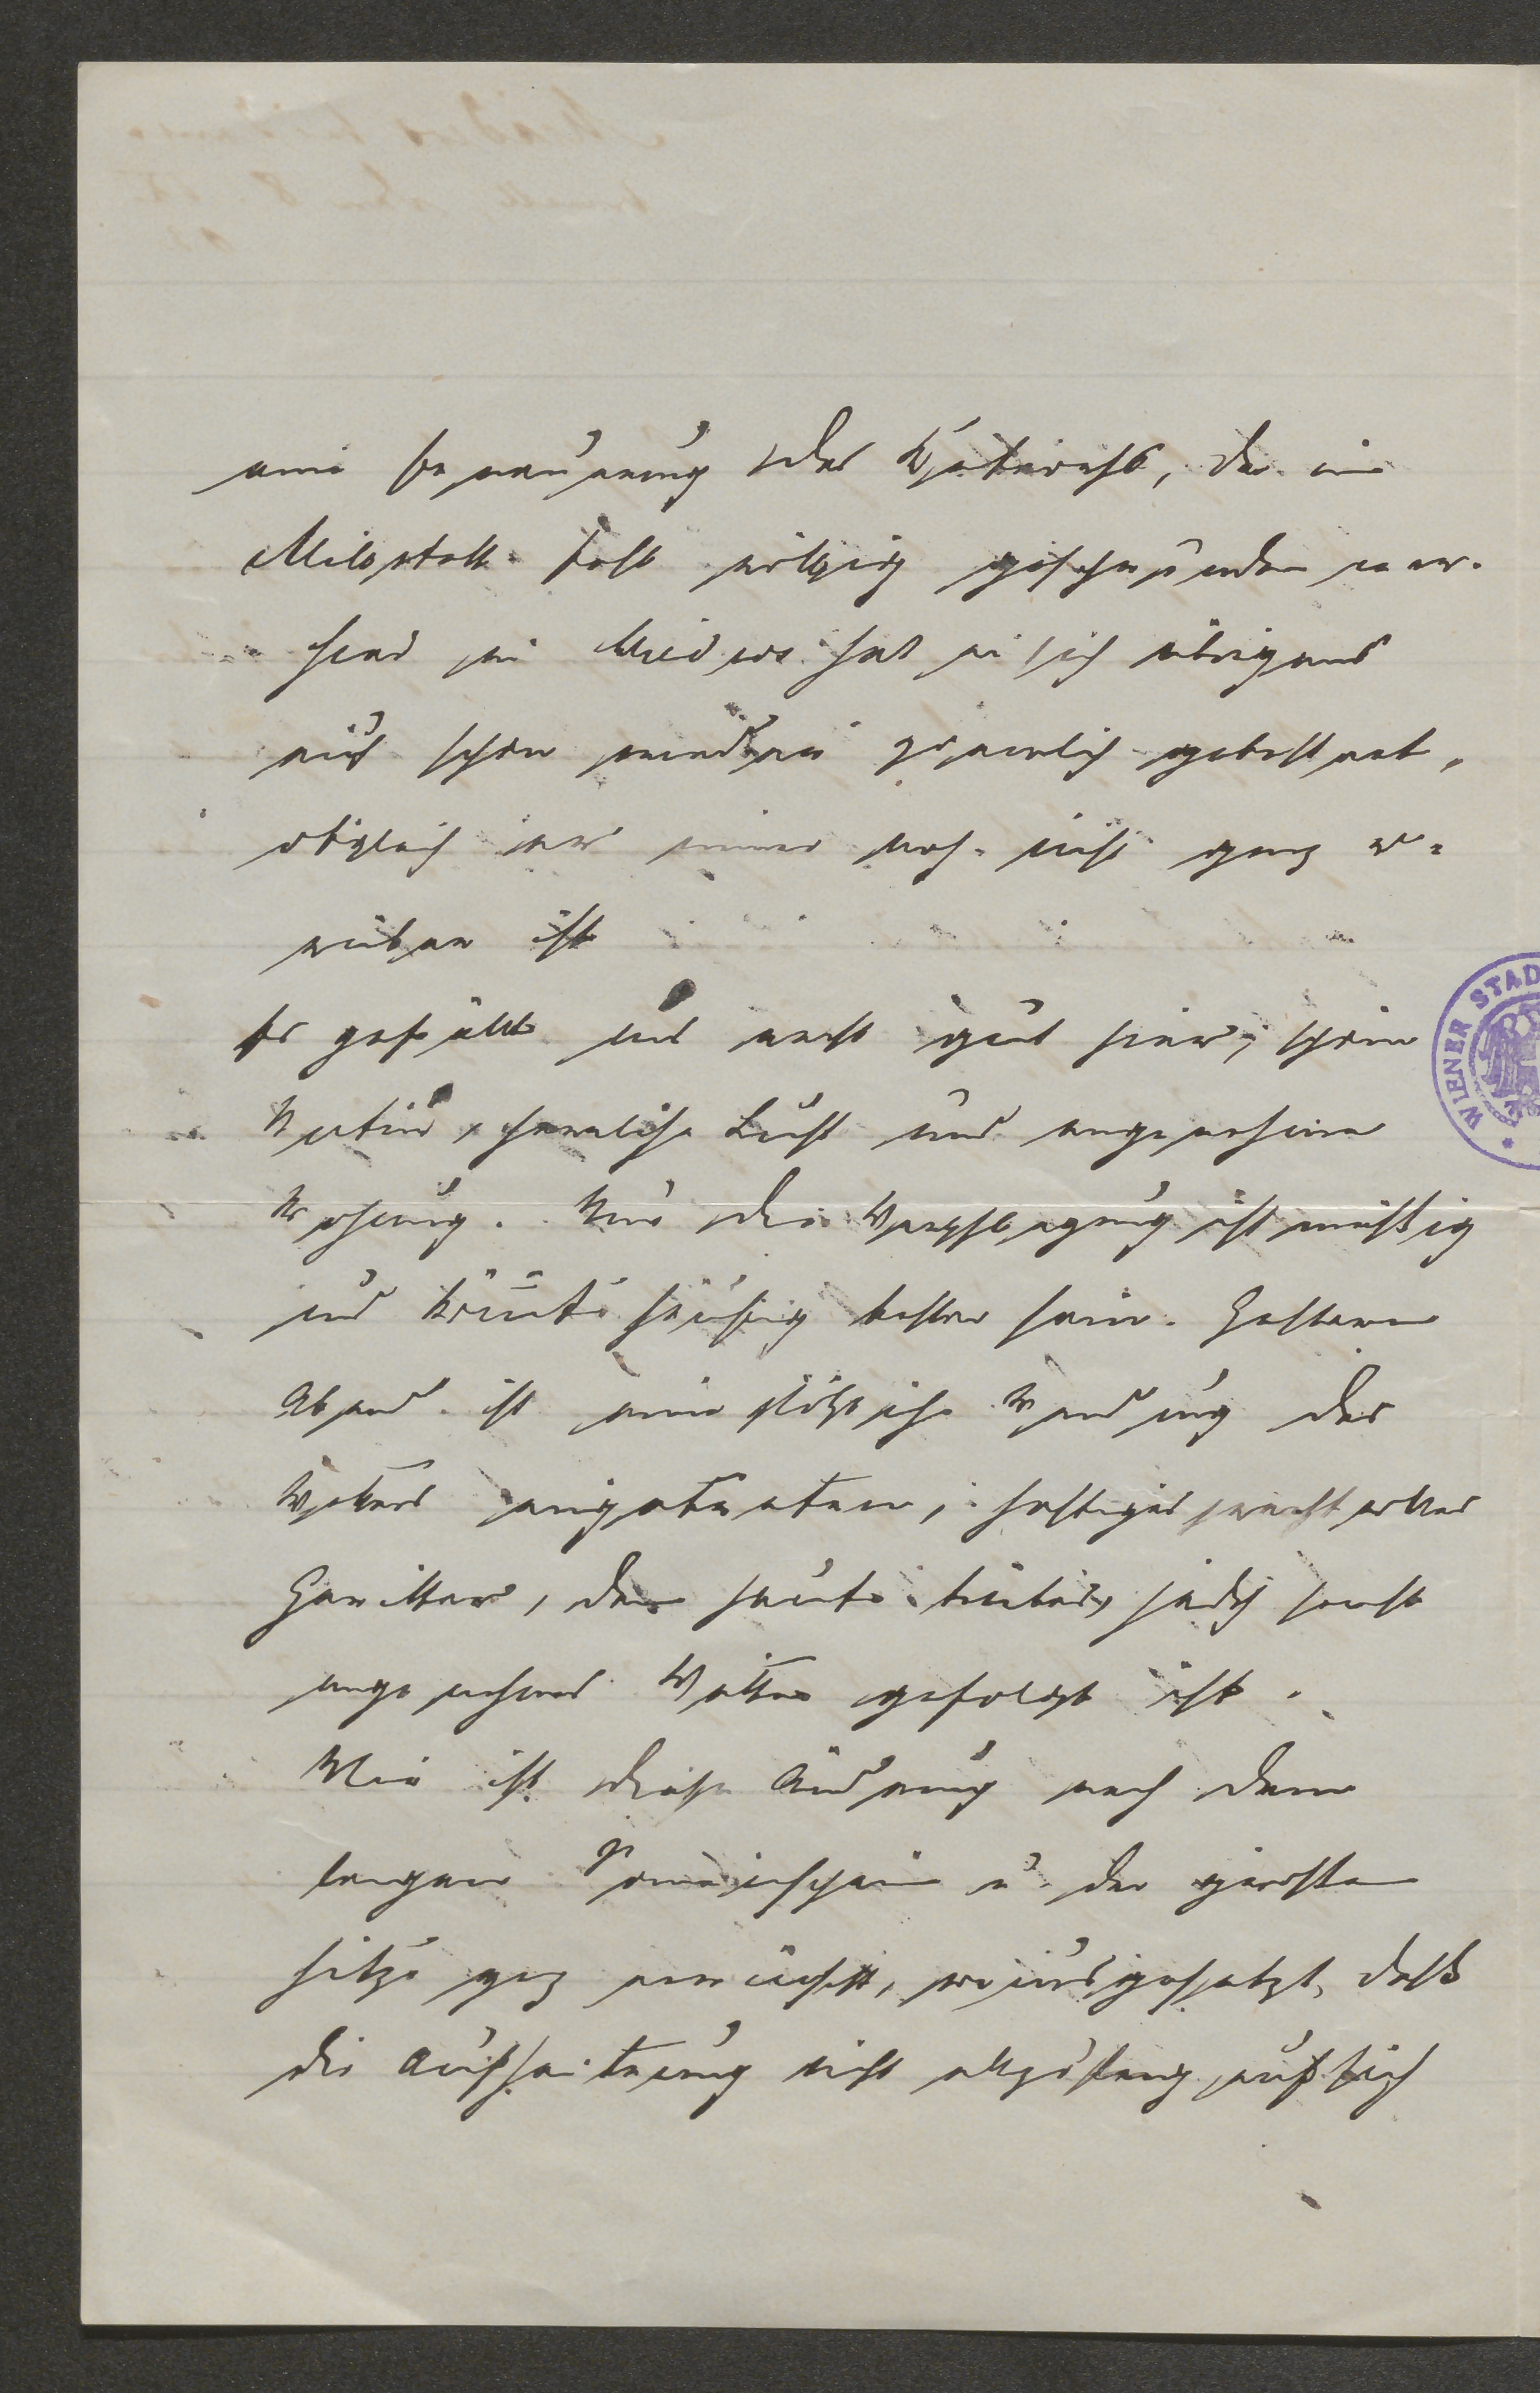 eine Erneuerung des Katarrhs, der in
Millstatt fast völlig geschwunden war.
Hier in Mieders hat er sich übrigens
auch schon wieder ziemlich gebessert,
obgleich er immer noch nicht ganz
vorüber ist
Es gefällt uns recht gut hier; schöne
Natur, herrliche Luft und angenehme
Wohnung. Nur die Verpflegung ist mäßig
und könnte häufig besser sein. Gestern
Abend ist eine plötzliche Wendung des
Wetters eingetreten, heftiges prachtvolles
Gewitter, dem heute trübes, jedoch sonst
angenehmes Wetter gefolgt ist.
Mir ist diese Änderung nach dem
langen Sonnenschein u der großen
Hitze ganz erwünscht, vorausgesetzt, daß
die Aufheiterung nicht allzulang auf sich
WIENER STAD